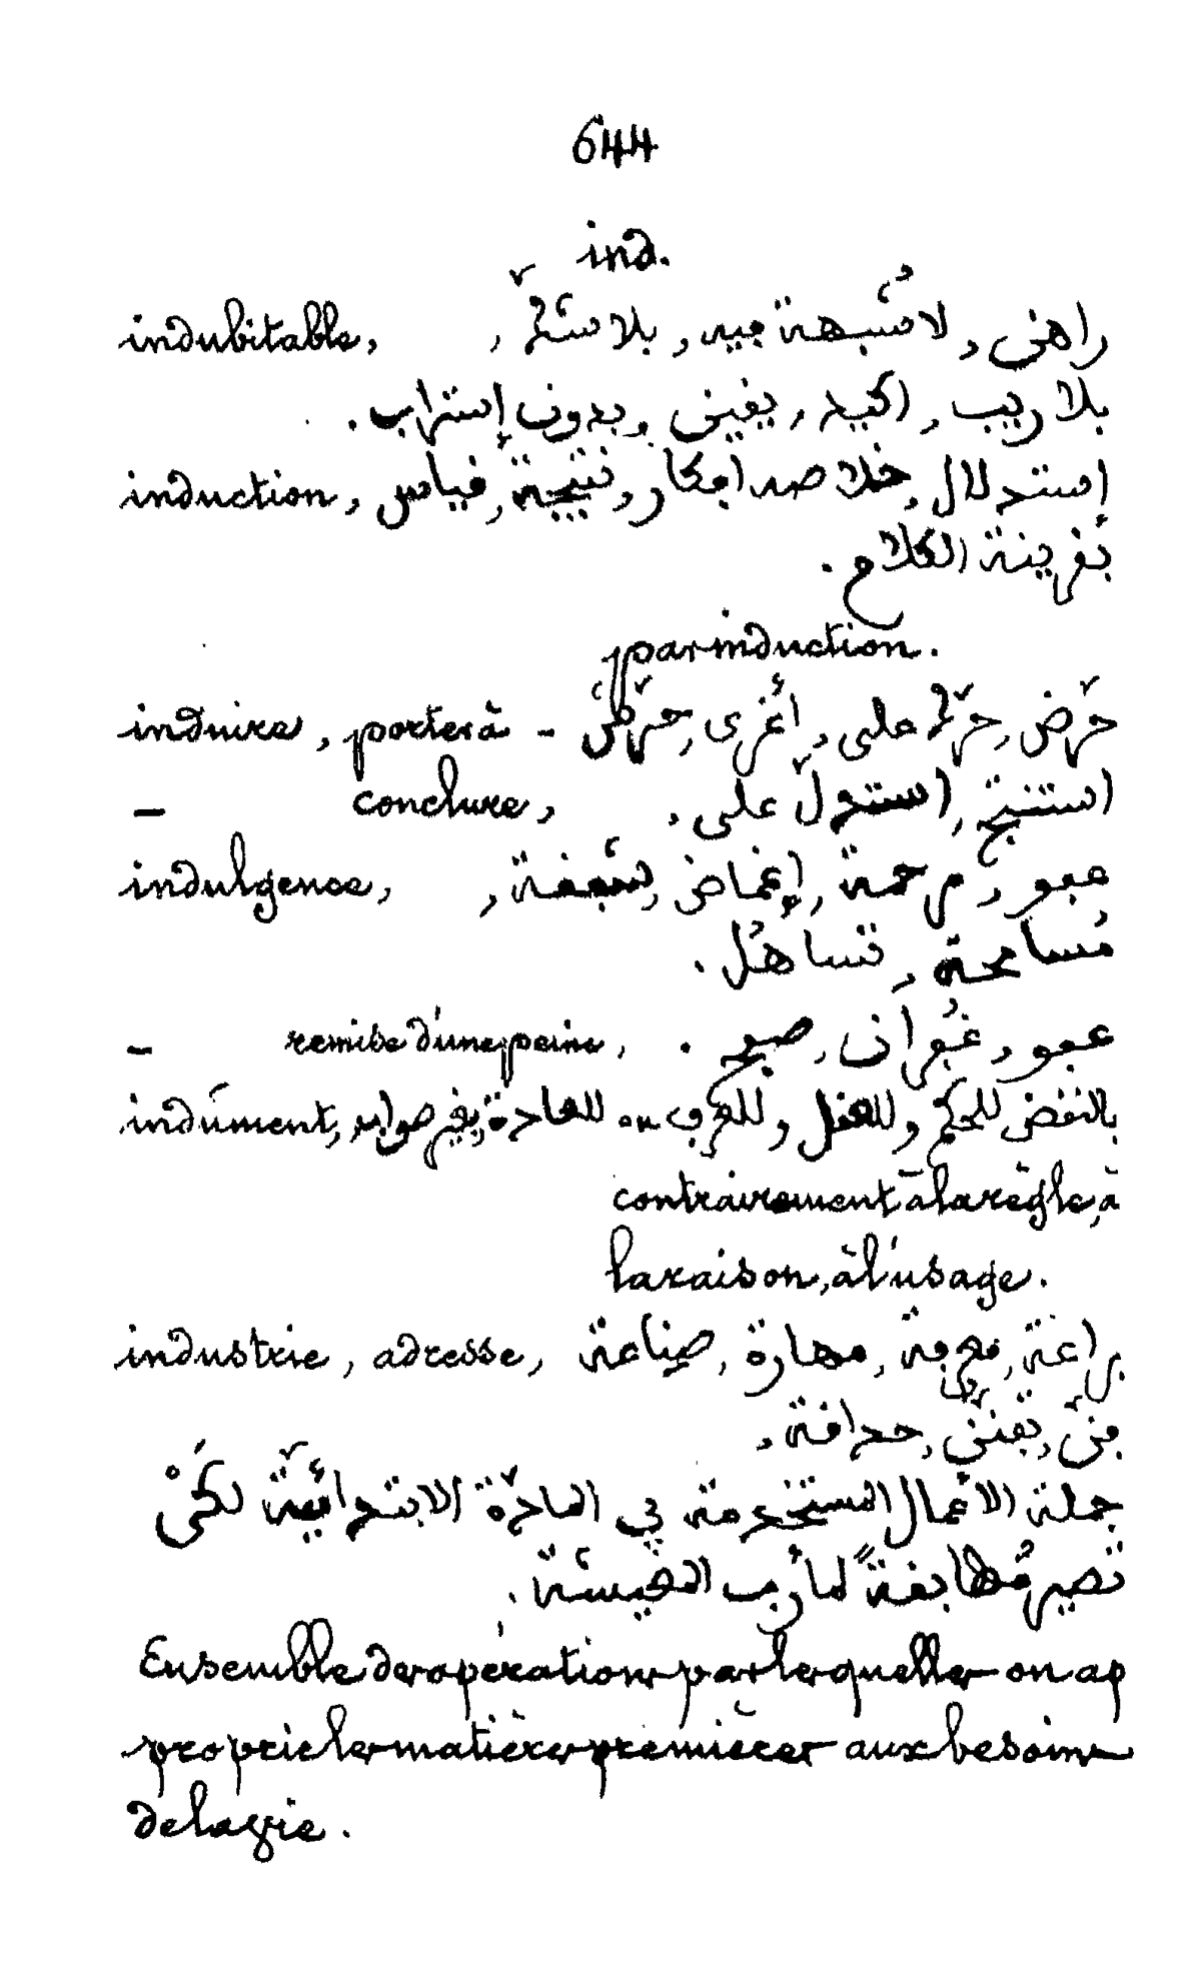 644
ind.
indubitable, راهن, لا شُبهة فيه, بلا شَكّ,
بلا ريب, اكيد, يقيني, بدون إستراب.
induction, إستدلال, خلاصه افكار, نتيجة, قياس
بقرينة الكلام.
par induction.
induire, porter à - حرّض, حرّك على, أغرى, حرّض
— conclure, استنتج, استدلّ على,
indulgence, عفو, مرحمة, إغماض, شَفقة,
مُسامحة, تساهُل.
— remise d'une peine, عفو, غُفران, صفح.
indûment, بالنقض للحكم وللعقل وللعرف ou للعادة, بغير صوابه
contrairement à la règle, à
la raison, à l'usage.
industrie, adresse, براعة, معرفة, مهارة, صناعة
فنّ, تفنّن, حذاقة,
جملة الاعمال المستخدمة في المادّة الابتدائيّة لكَيْ
تصير مُطابقةً لمأرب المعيشَة.
Ensemble des opérations par lesquelles on ap
proprie les matières premières aux besoins
de la vie.